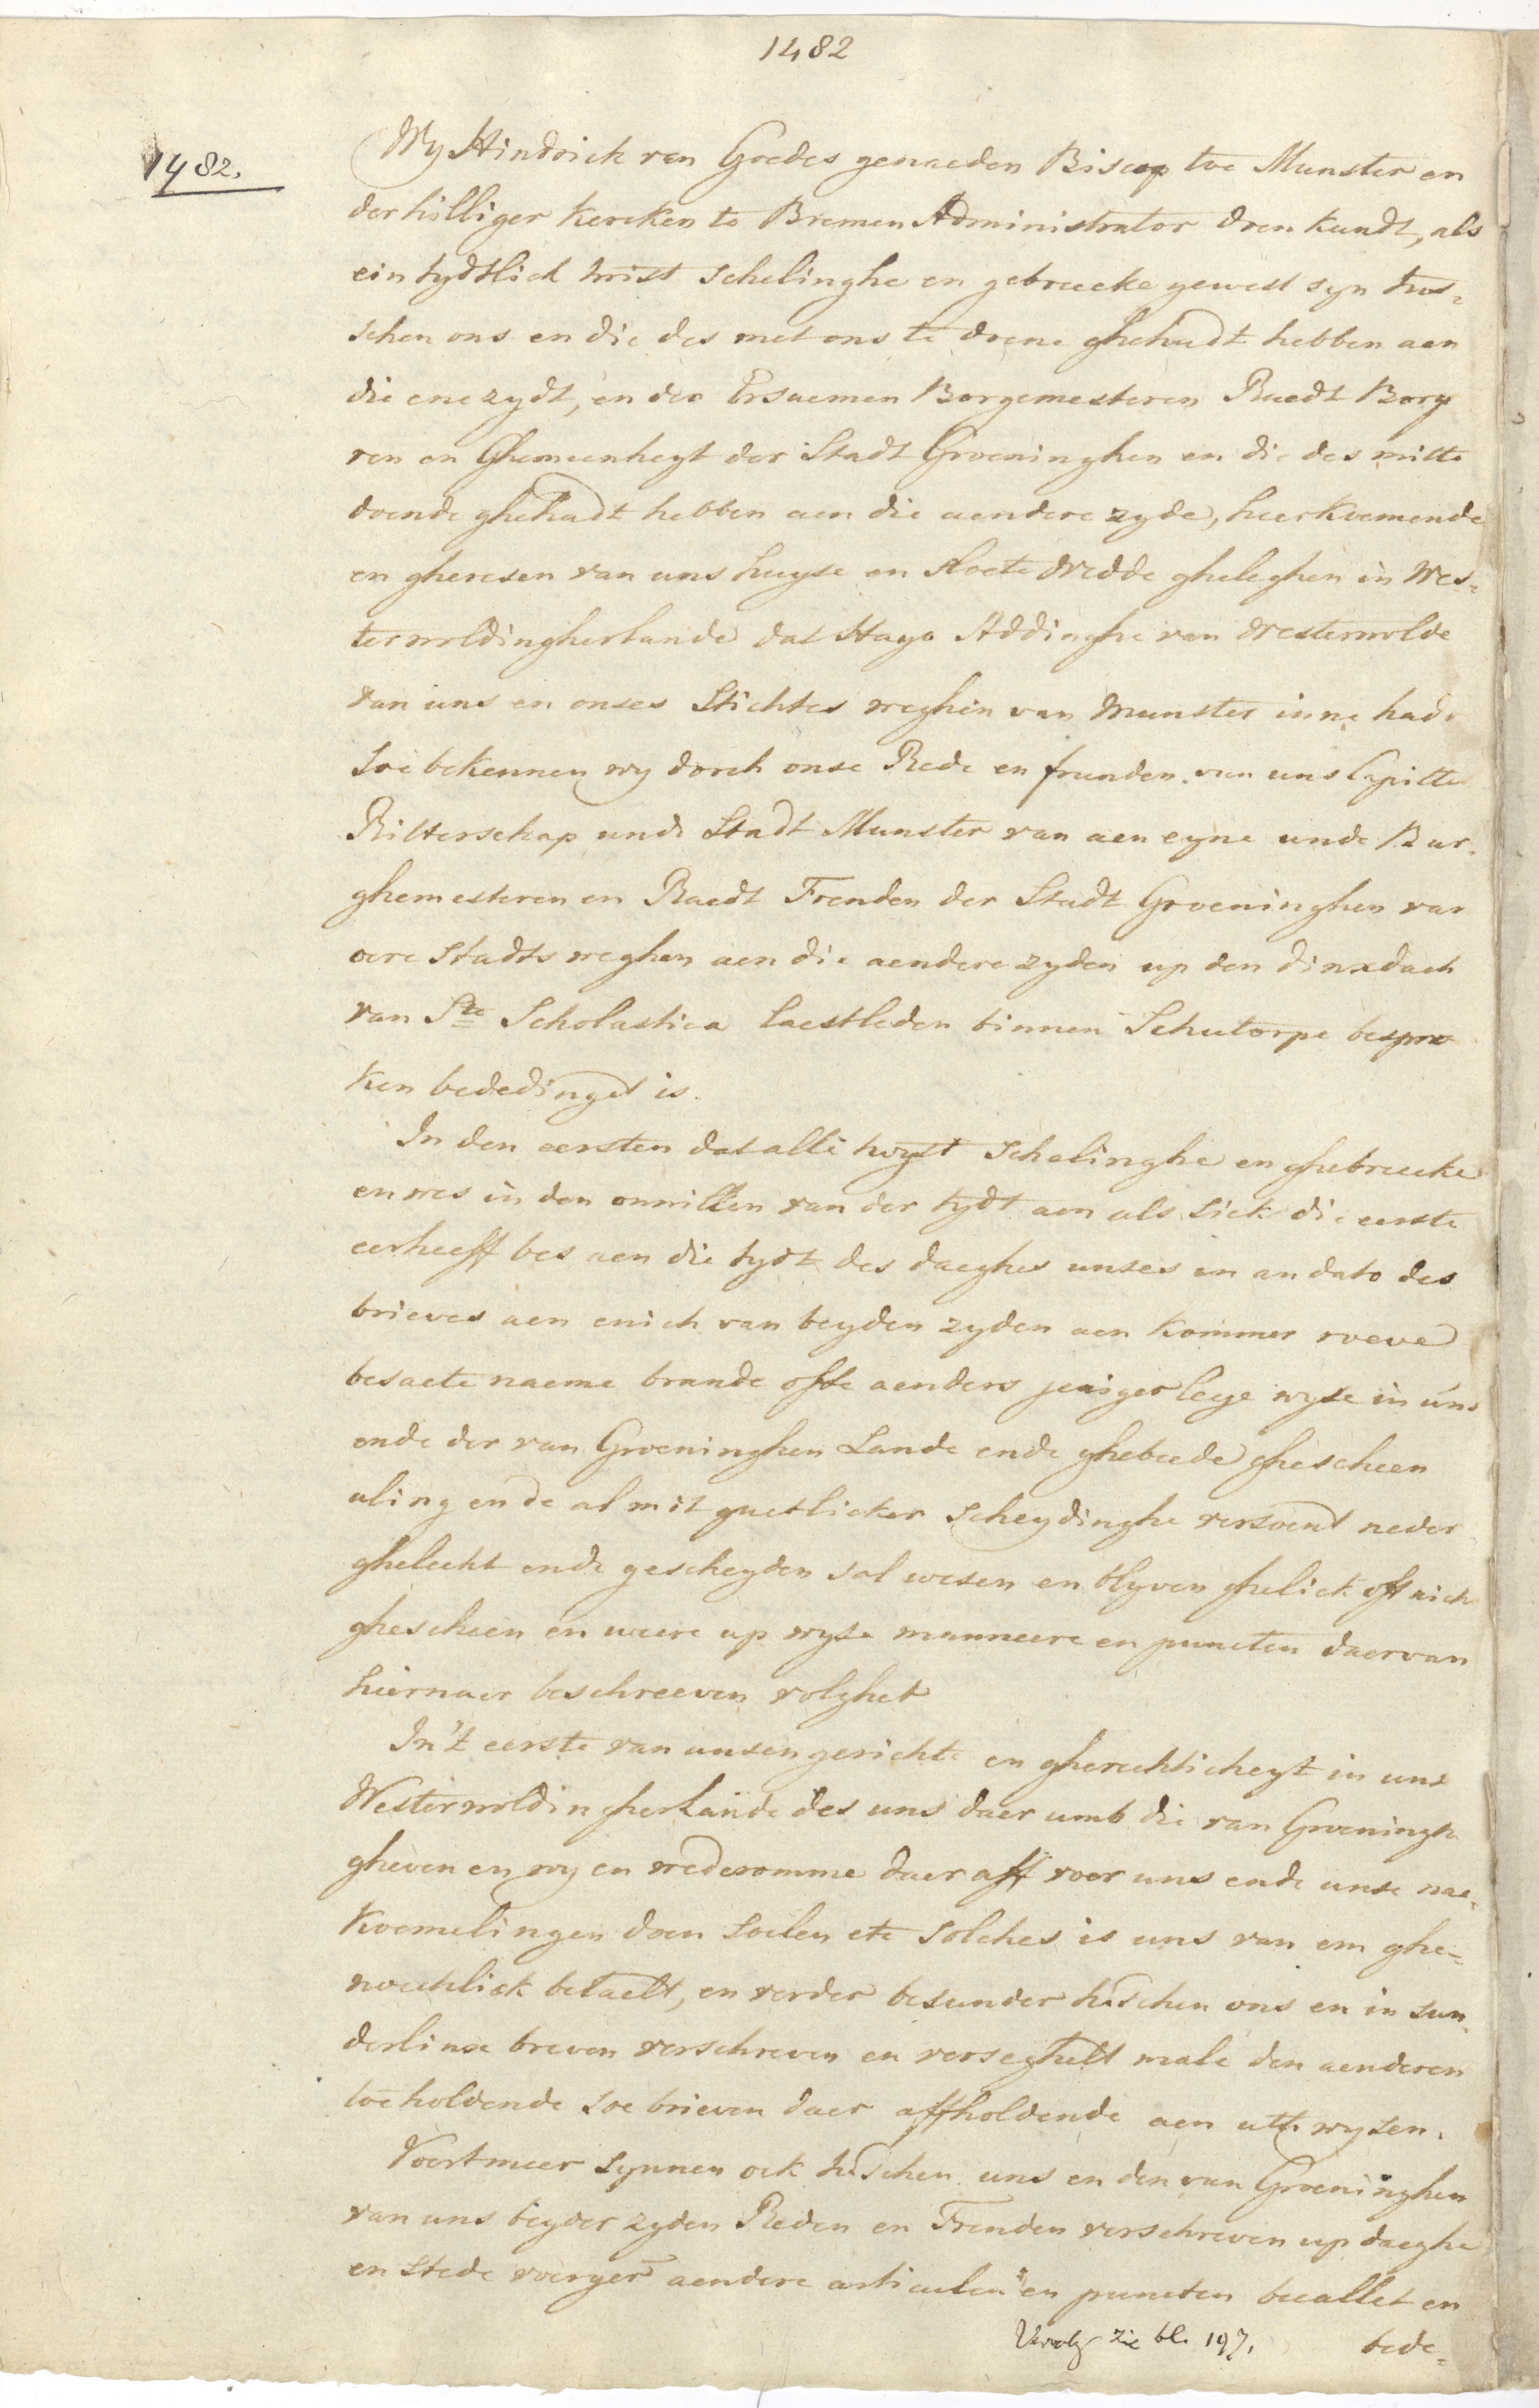 1482
1482.
Wy Hindrick van Goedes genaeden Biscop toe Munster en
der hilliger Kercken to Bremen Administrator doen kundt, als
ein tydtlick twist schelinghe en gebreecke gewest syn tus-
schen ons en die des met ons te doene ghehadt hebben aen
die ene zydt, en der Ersaemen Borgemesteren Raedt Borge
ren en Ghemeenheyt der Stadt Groeninghen en die des mitte
doende ghehadt hebben aen die aendere zyde, heerkoemende
en gheresen van uns huyse en slaete Wedde gheleghen in Wes-
terwoldingherlande dat Hayo Addinghe van Westerwolde
van uns en onses Stichtes weghen van Munster inne hade
soe bekennen wy dorch onse Rede en frunden van uns Capittel
Ritterschap unde Stadt Munster van aen eyne unde Bur-
ghemesteren en Raedt Frenden der Stadt Groeninghen van
oere Stadts weghen aen die aendere zyden up den dinxdach
van Ste Scholastica laestleden binnen Schutorpe bespro
ken bededinget is.
In den eersten dat alle twyst schelinghe en ghebreecke
en wes in den onwillen van der tydt aen als sick die eerste
eerheeff bes aen die tydt des daeghes unses en an dato des
brieves aen enich van beyden zyden aen kommer roeve
besaete naeme brande offe aenders jeniger leye wyse in uns
ende der van Groeninghen Lande ende ghebeede ghescheen
aling ende al mit guetlicker scheydinghe versoent neder
ghelecht ende gescheyden sal wesen en blyven ghelick oft nich
ghescheen en weere up wyse manneere en puncten daervan
hiernaer beschreeven volghet
In't eerste van unsen gerichte en gherechticheyt in uns
Westerwoldingherlande des uns daer umb die van Groeningh
gheven en wy en wederomme daer aff voer uns ende unse nae-
koemelingen doen soelen etc solches is uns van em ghe-
noechlick betaelt, en verder besunder tuschen ons en in sun-
derlinxe breven verschreven en verseghelt male den aenderen
toe holdende soe brieven daer affholdende aen utt wysen.
Voertmeer synnen ock tuschen uns en den van Groeninghen
van uns beyder zyden Reden en Frenden verschreven up daeghe
en stede voerger aendere articulen en puncten beeallet en
Vervolg zie bl. 197.
bede-